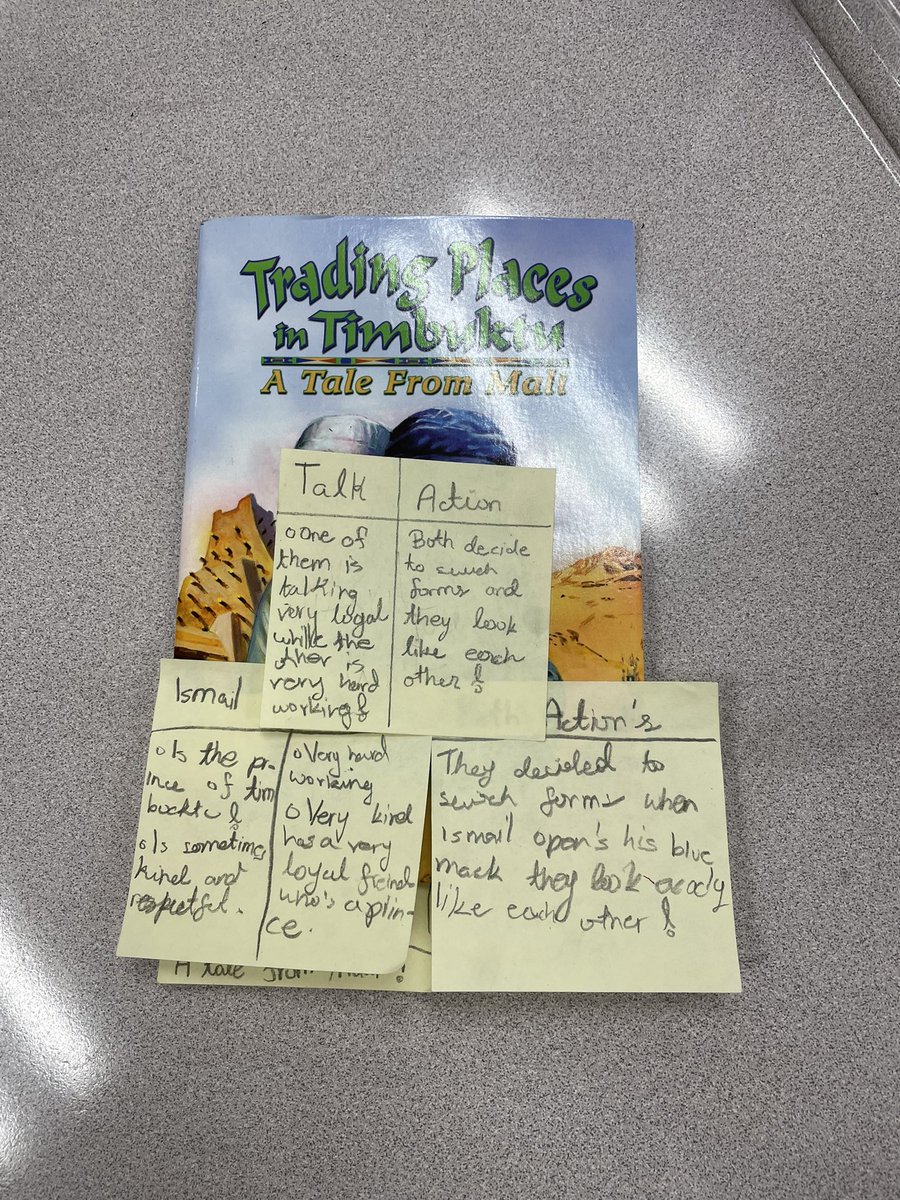 Trading Places
in Timbuktu
A Tale From Mali
Talk
Action
o One of
them is
talking
very logal
while the
other is
very hard
working!
Both decide
to swich
forms and
they look
like each
other!
Ismail
o Is the pr-
ince of tim
bucktu!
o Is sometimes
kind and
respetful.
o Very hard
working
o Very kind
has a very
loyal freind
who's a plin-
ce.
Action's
They decided to
swich forms when
ismail open's his blue
mack they look exacly
like each other!
A tale from